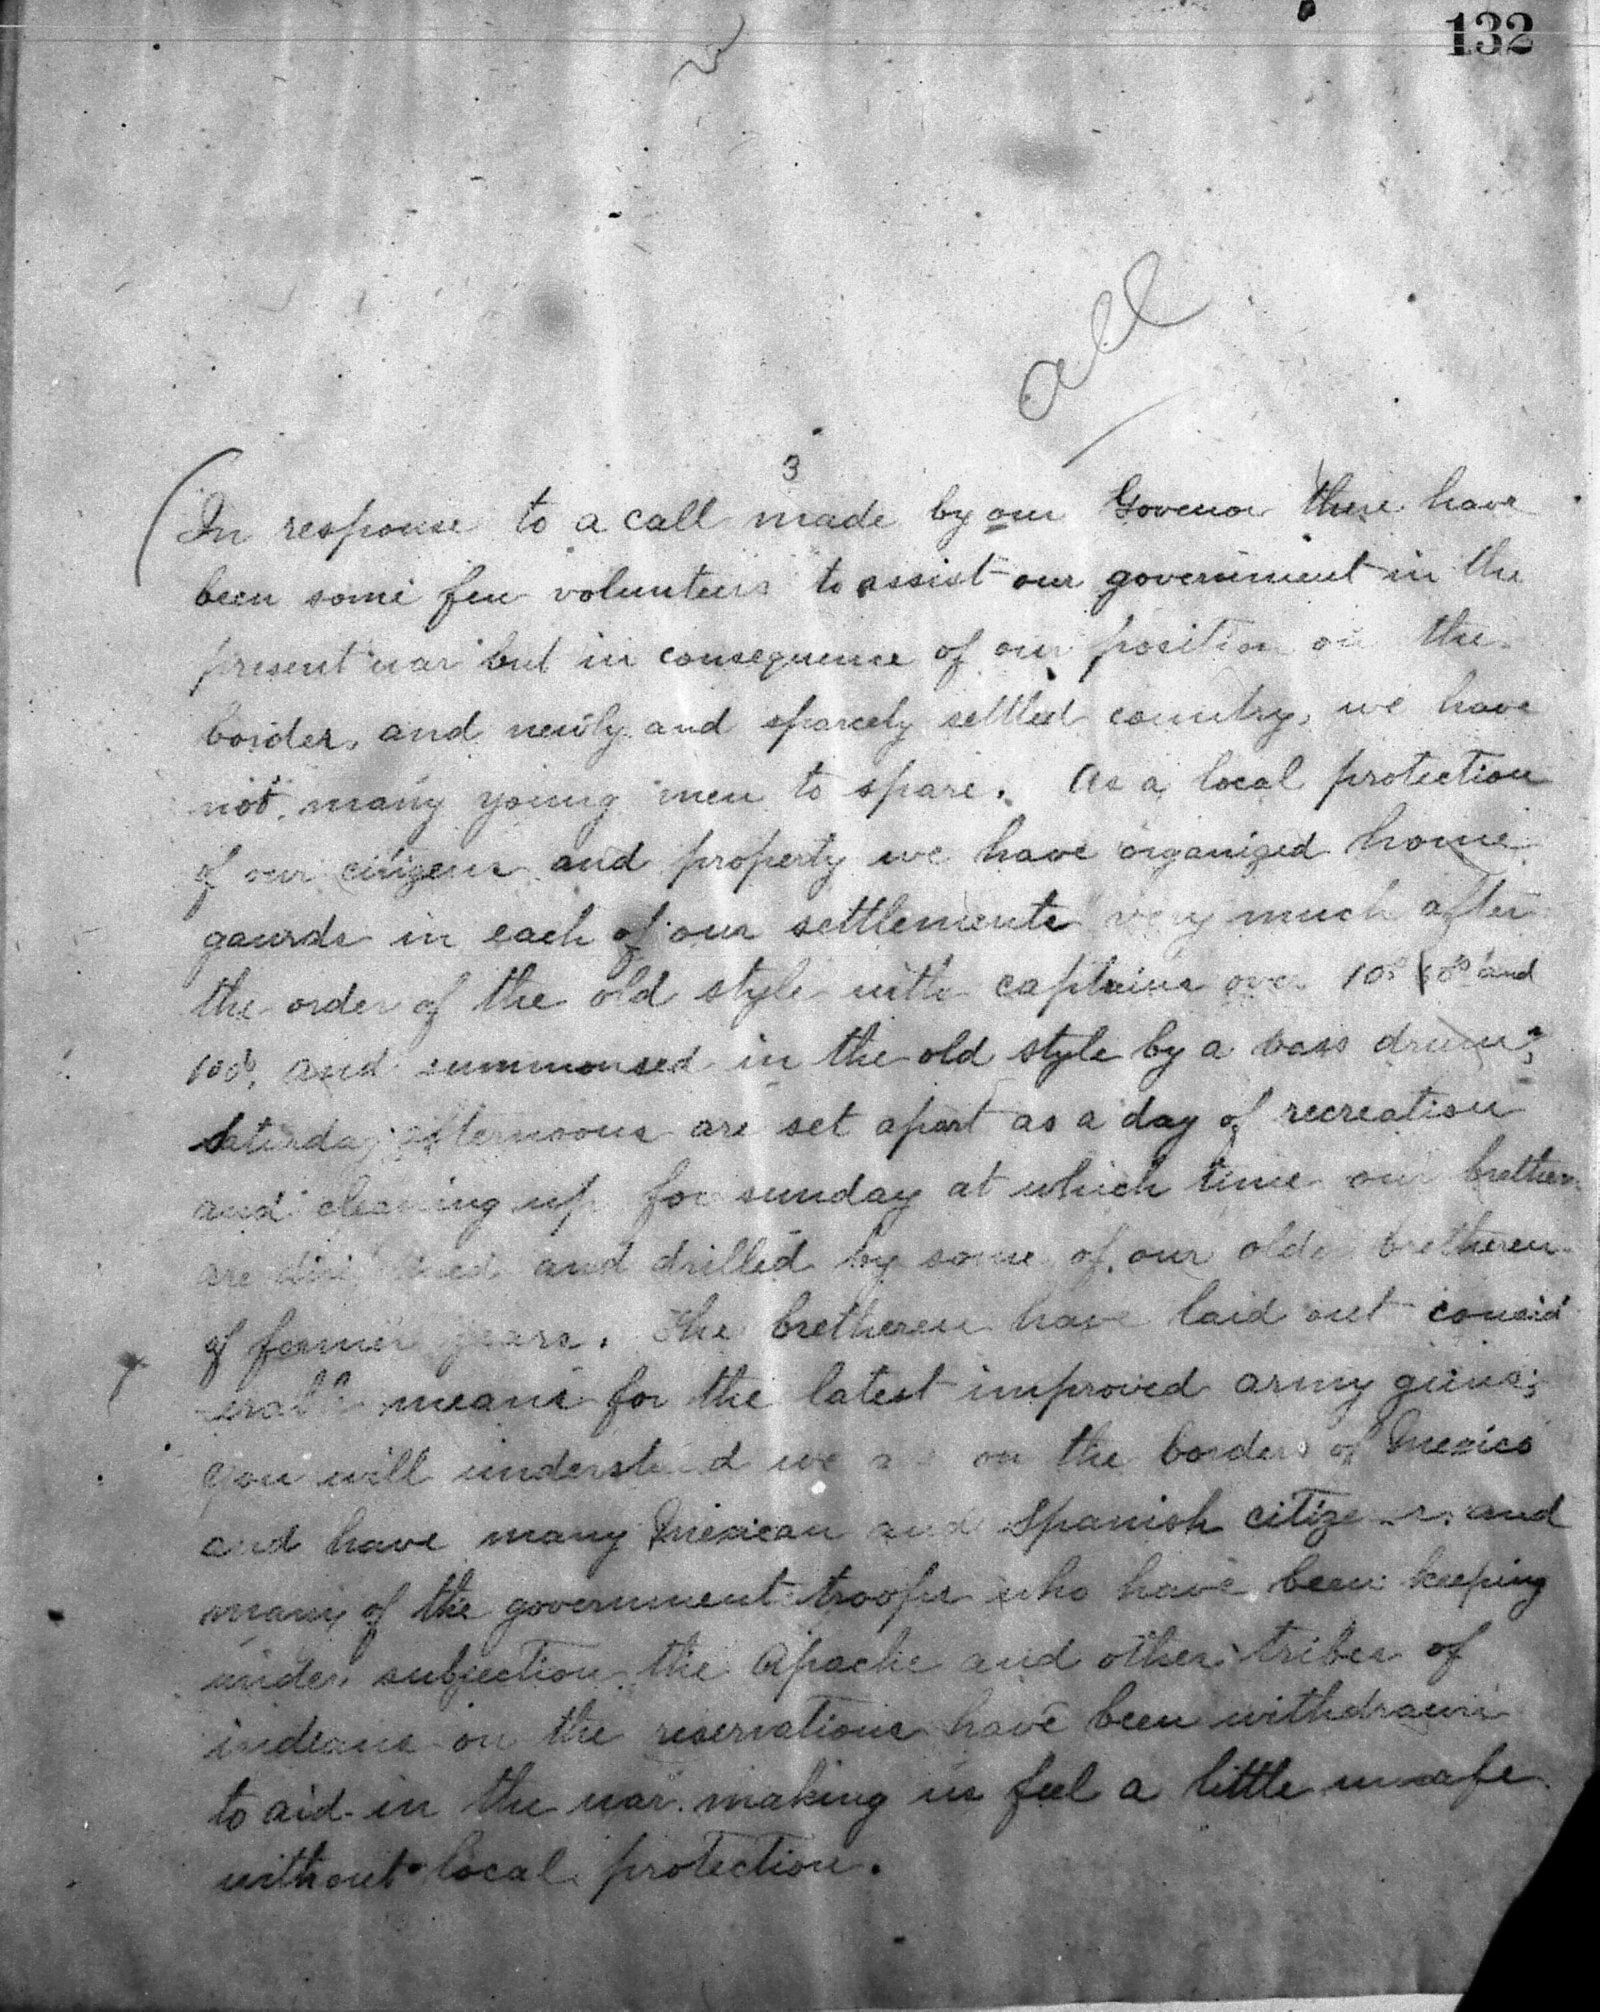 132
all
3
In response to a call made by our Govenor there have
been some few volunteers to assist our government in the
present war but in consequence of our position on the
border, and newly and sparcely settled country, we have
not many young men to spare. As a local protection
of our citizens and property we have organized home
gaurds in each of our settlements very much after
the order of the old style with captains over 10s 50s and
100s, and summonsed in the old style by a bass drum;
saturday afternoons are set apart as a day of recreation
and cleaning up for sunday at which time our brethern
are and drilled by some of our older bretheren
of former years. The bretheren have laid out consid
erable means for the latest improved army guns;
you will understand we are on the borders of Mexico
and have many Mexican and Spanish citizens, and
many of the government troops who have been keeping
under subjection the Apache and other tribes of
indeans on the reservations have been withdrawn
to aid in the war making us feel a little unsafe
without local protection.